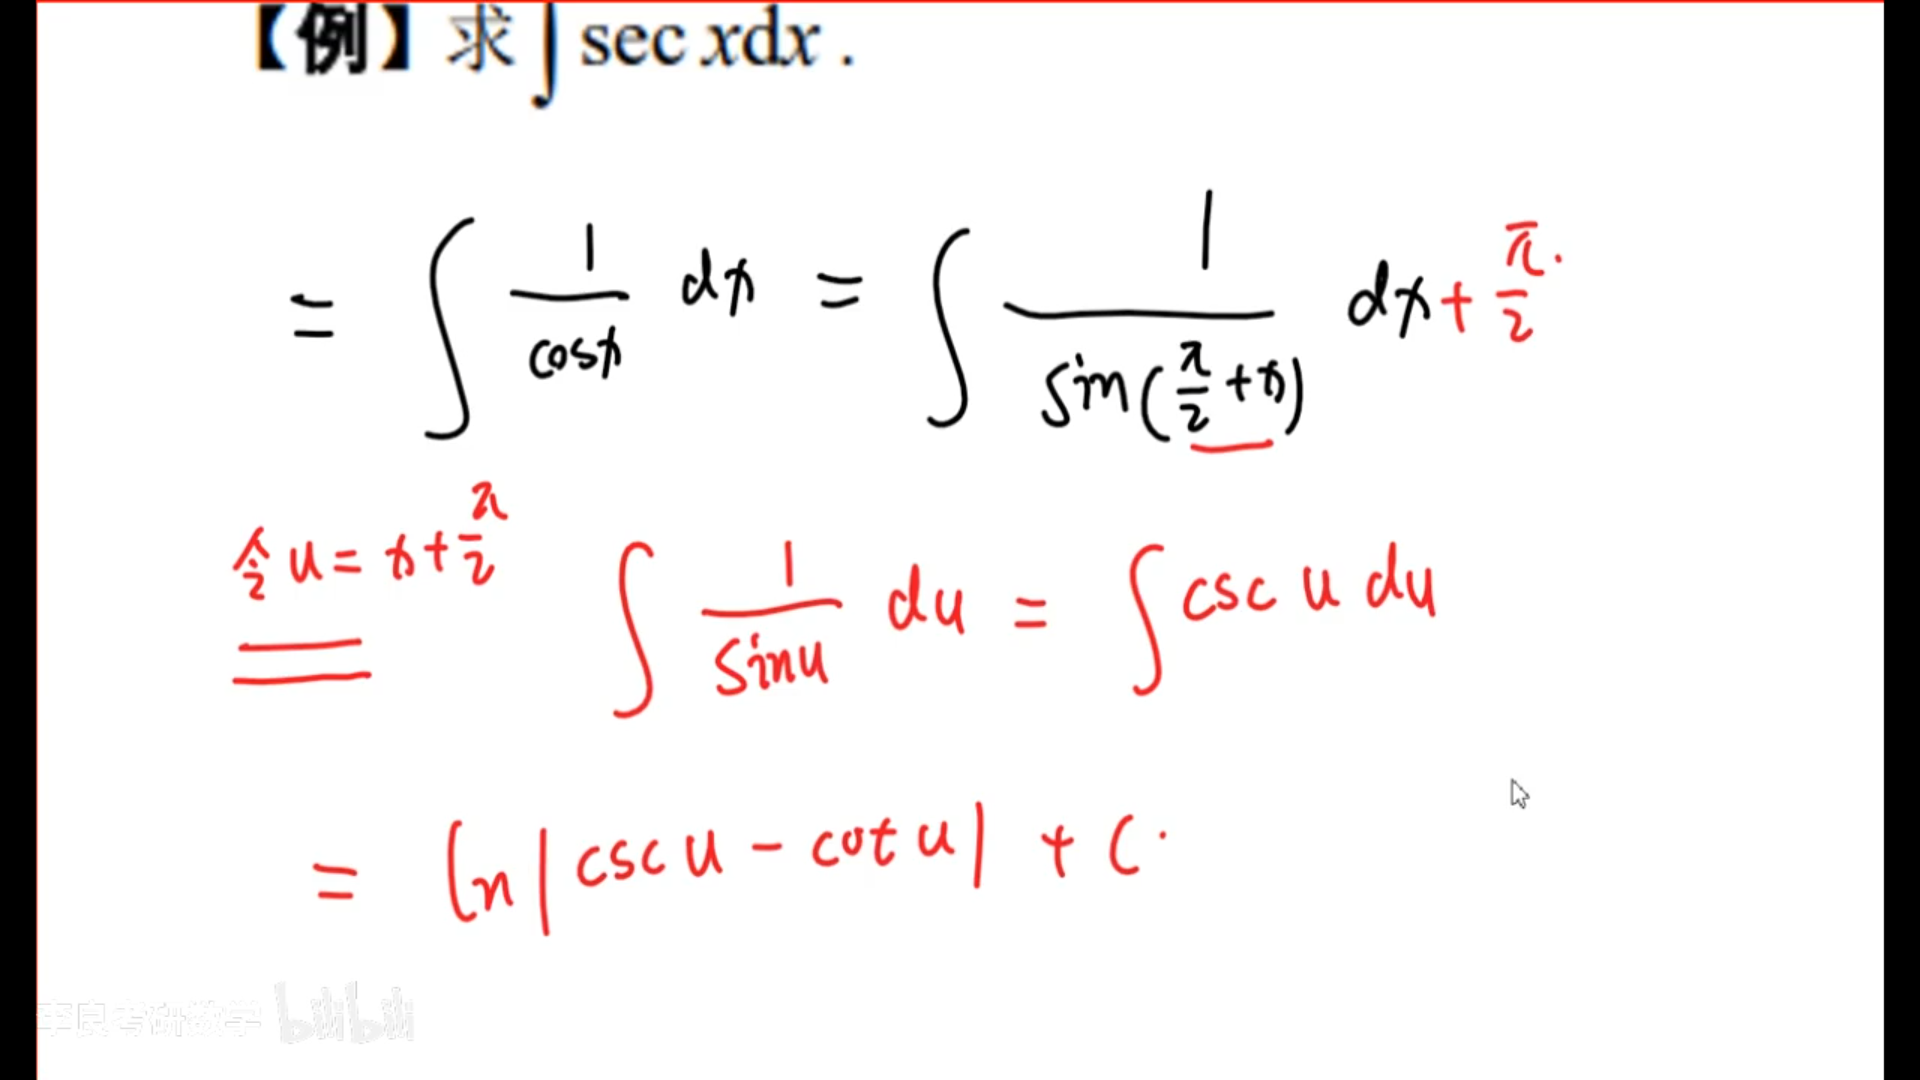 【例】求∫ sec xdx .
= ∫ 1/cosx dx = ∫ 1/sin(π/2+x) dx+π/2.
令u=x+π/2 ∫ 1/sinu du = ∫csc u du
= ln|csc u - cot u| + C.
李良考研数学 bilibili